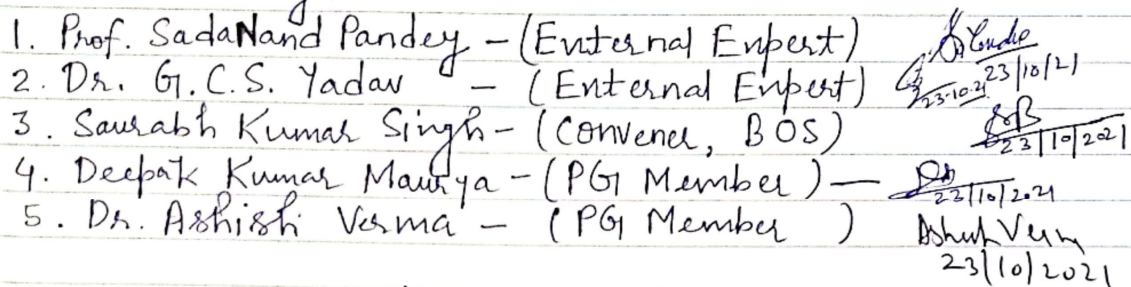 1. Prof. SadaNand Pandey - (External Expert) 23/10/21
2. Dr. G.C.S. Yadav - (External Expert) 23-10-21
3. Saurabh Kumar Singh - (Convener, BOS) 23/10/2021
4. Deepak Kumar Maurya - (PG Member) — 23/10/2021
5. Dr. Ashish Verma - (PG Member ) Ashish Verma
23/10/2021